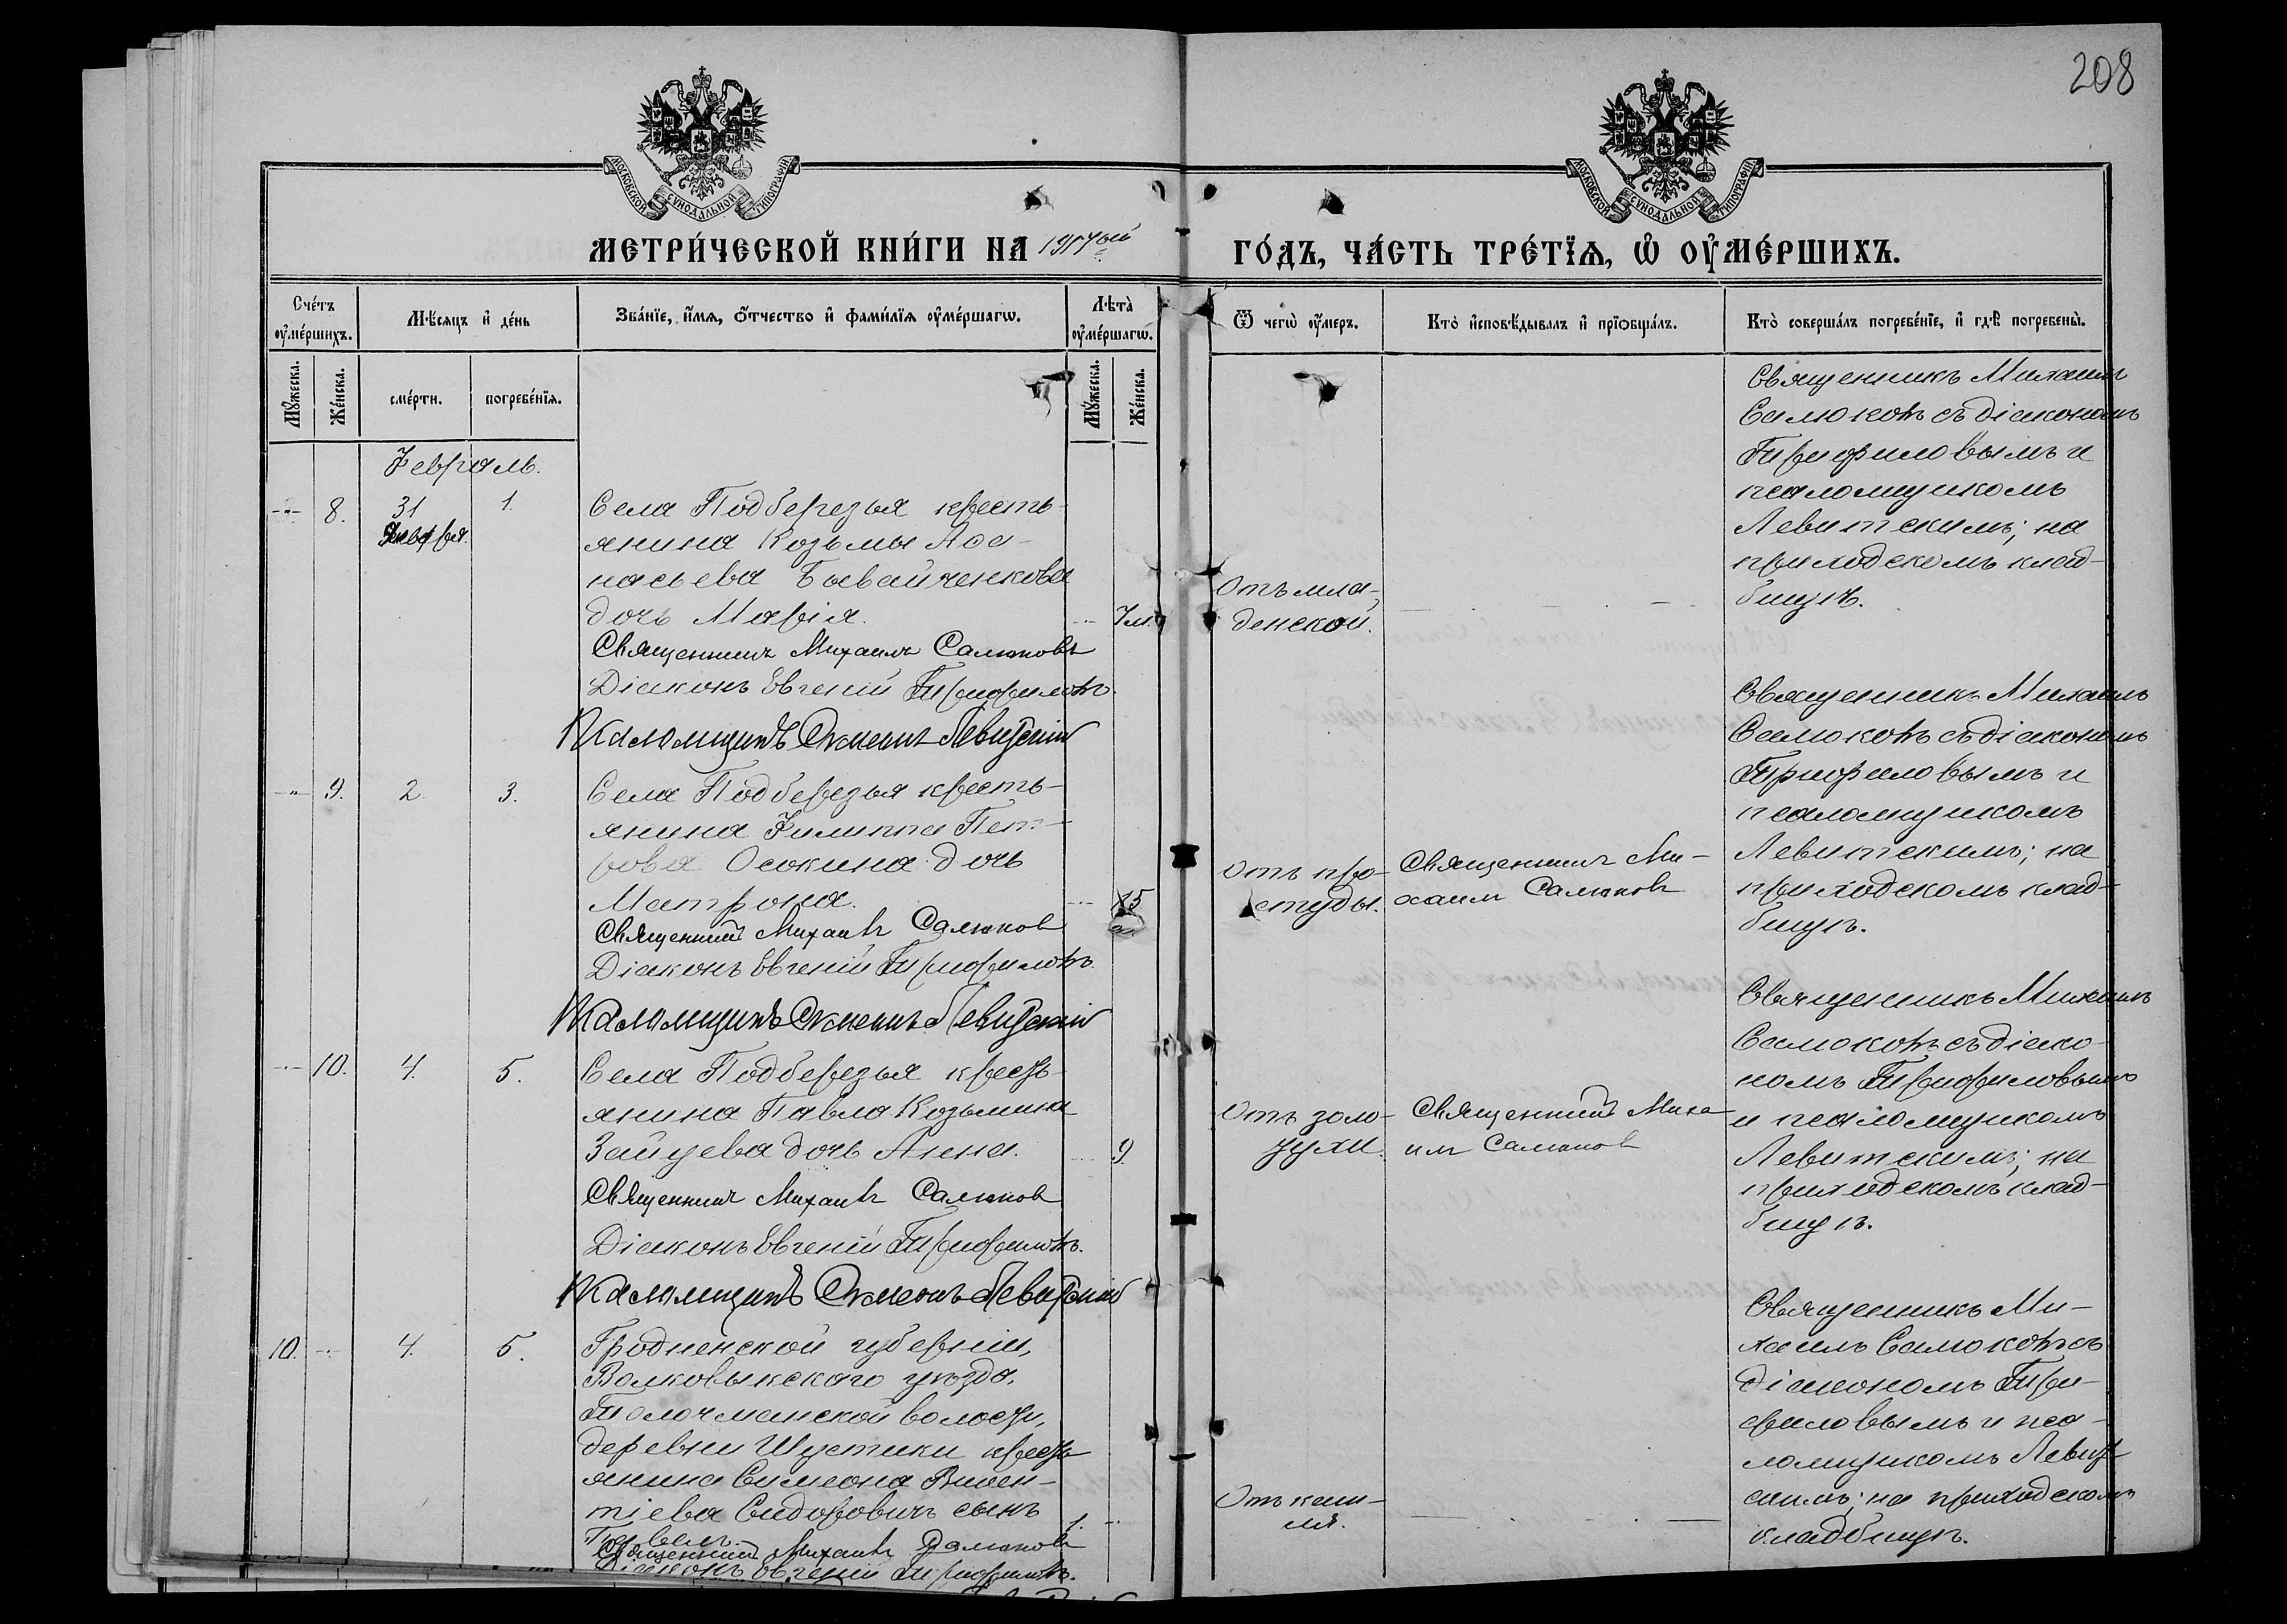 208
МОСКОВСКОЙ СѴНОДАЛЬНОЙ ТИПОГРАФІИ
МОСКОВСКОЙ СѴНОДАЛЬНОЙ ТИПОГРАФІИ
МЕТРИ́ЧЕСКОЙ КНИ́ГИ НА 1917ый
ГО́ДЪ, ЧА́СТЬ ТРЕ́ТЇѦ, Ѽ ОУ҆МЕ́РШИХЪ.
Сче́тъ оу҆ме́ршихъ.
Мꙋ́жеска.
Же́нска.
Мѣ́сяцъ и҆ де́нь
сме́рти.
погребе́нїѧ.
Зва́нїе, и҆́мѧ, ѻ҆́тчество и҆ фами́лїѧ оу҆ме́ршагѡ.
Лѣта̀ оу҆ме́ршагѡ.
Мꙋ́жеска.
Же́нска.
Ѿ чегѡ̀ оу҆́меръ.
Кто̀ и҆сповѣ́дывалъ и҆ прїѡбща́лъ.
Кто̀ соверша́лъ погребе́нїе, и҆ гдѣ̀ погребены̀.
Февраль.
-"- 8. 31 Января. 1.
Села Подберезья кресть-
янина Козьмы Аѳа-
насьева Бывайченкова
дочь Марія.
7м.
Священникъ Михаилъ Самоковъ
Діаконъ Евгеній Трифиловъ.
Псаломщикъ Симеонъ Левитскій
Отъ мла-
денской.
Священникъ Михаилъ
Самоковъ съ діакономъ
Трифиловымъ и
псаломщикомъ
Левитскимъ; на
приходскомъ клад-
бищѣ.
-"- 9. 2. 3.
Села Подберезья кресть-
янина Филиппа Пет-
рова Осокина дочь
Матрона.
Священникъ Михаилъ Самоковъ
Діаконъ Евгеній Трифиловъ.
Псаломщикъ Симеонъ Левитскій
Отъ про-
студы.
Священникъ Ми-
хаилъ Самоковъ
Священникъ Михаилъ
Самоковъ съ діакономъ
Трифиловымъ и
псаломщикомъ
Левитскимъ; на
приходскомъ клад-
бищѣ.
-"- 10. 4. 5.
Села Подберезья кресть-
янина Павла Козьмина
Зайцева дочь Анна.
9.
Священникъ Михаилъ Самоковъ
Діаконъ Евгеній Трифиловъ.
Псаломщикъ Симеонъ Левитскій
Отъ золо-
тухи.
Священникъ Миха
илъ Самоковъ
Священникъ Михаилъ
Самоковъ съ діако-
номъ Трифиловымъ
и псаломщикомъ
Левитскимъ; на
приходскомъ клад-
бищѣ.
10. -"- 4. 5.
Гродненской губерніи,
Волковыкскаго уѣзда,
Толочманской волости,
деревни Шустики кресть
янина Симеона Викен-
тіева Сидоровичъ сынъ
Павелъ.
1. -"-
Священникъ Михаилъ Самоковъ
Діаконъ Евгеній Трифиловъ.
Отъ каш-
ля.
Священникъ Ми-
хаилъ Самоковъ съ
діакономъ Три-
филовымъ и пса-
ломщикомъ Левит-
скимъ; на приходскомъ
кладбищѣ.